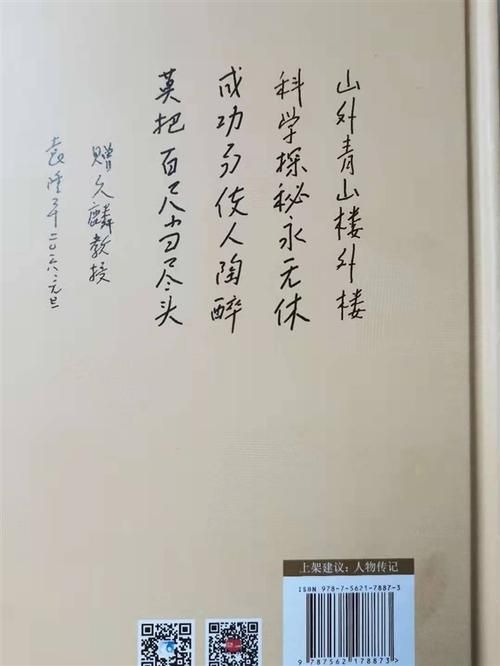 山外青山楼外楼
科学探秘永无休
成功易使人陶醉
莫把百尺当尽头
赠久麟教授
袁隆平二〇一六.元旦
上架建议：人物传记
ISBN 978-7-5621-7887-3
9 787562 178873 >